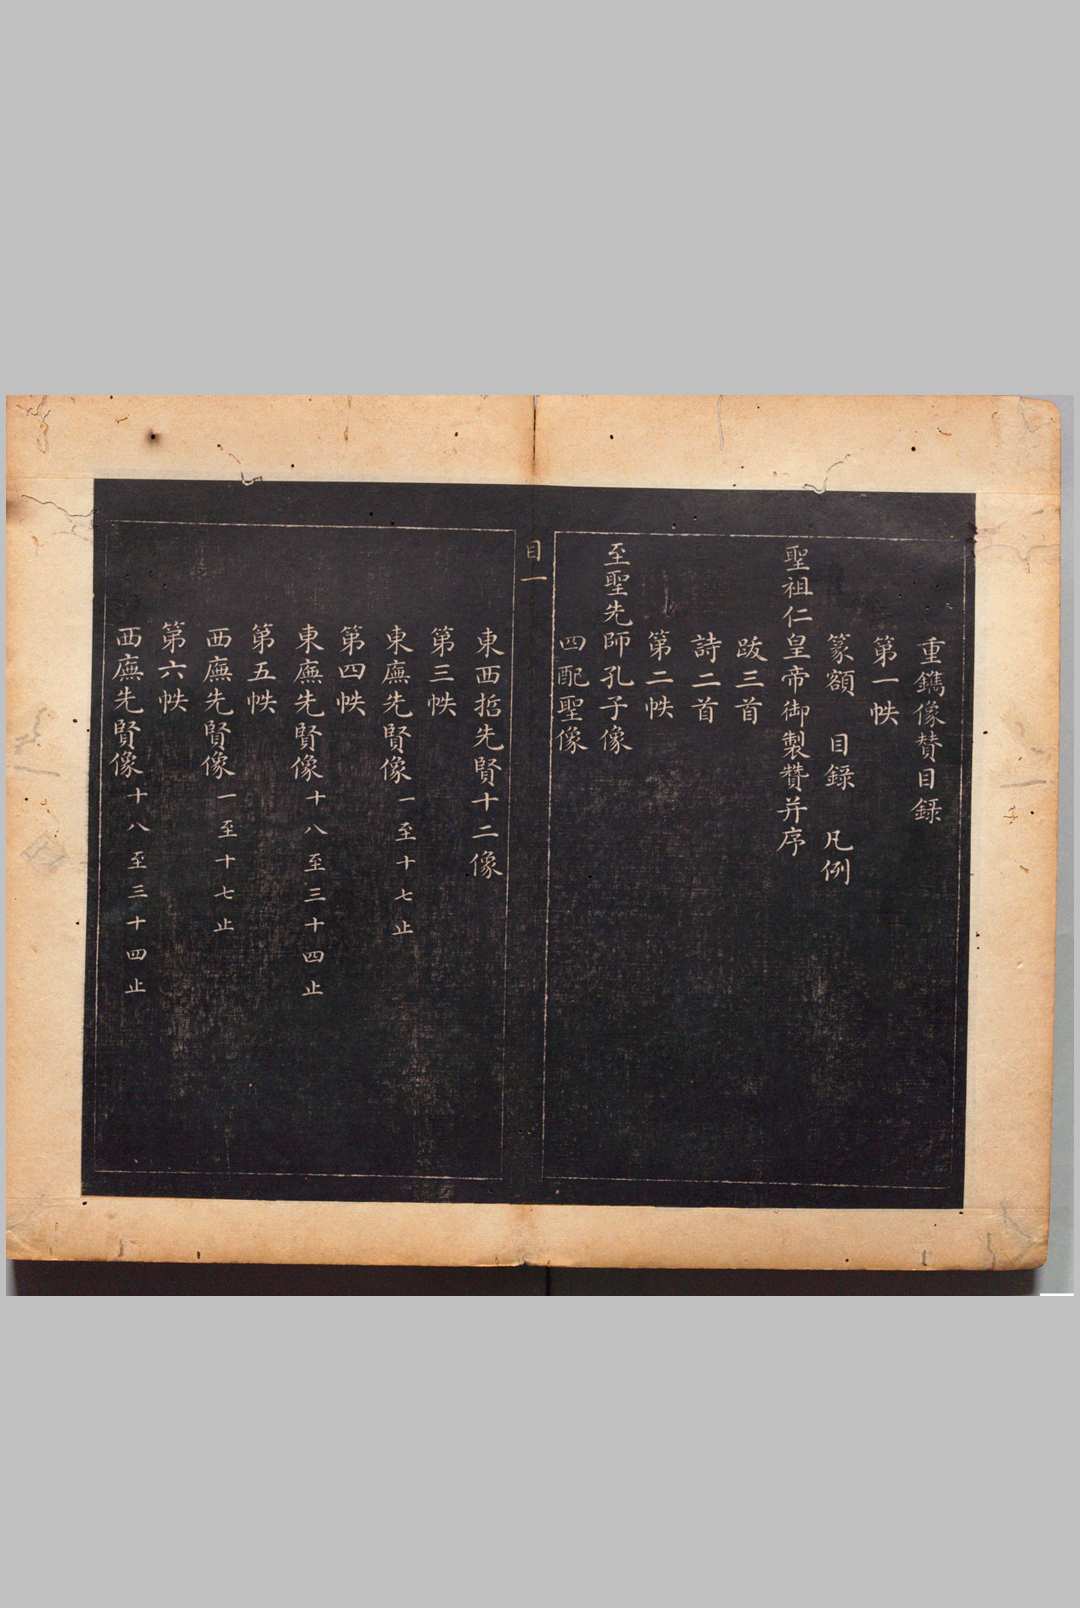 重鐫像賛目録
第一帙
篆額　目録　凡例
聖祖仁皇帝御製賛并序
跋三首
詩二首
第二帙
至聖先師孔子像
四配聖像
目一
東西哲先賢十二像
第三帙
東廡先賢像一至十七止
第四帙
東廡先賢像十八至三十四止
第五帙
西廡先賢像一至十七止
第六帙
西廡先賢像十八至三十四止